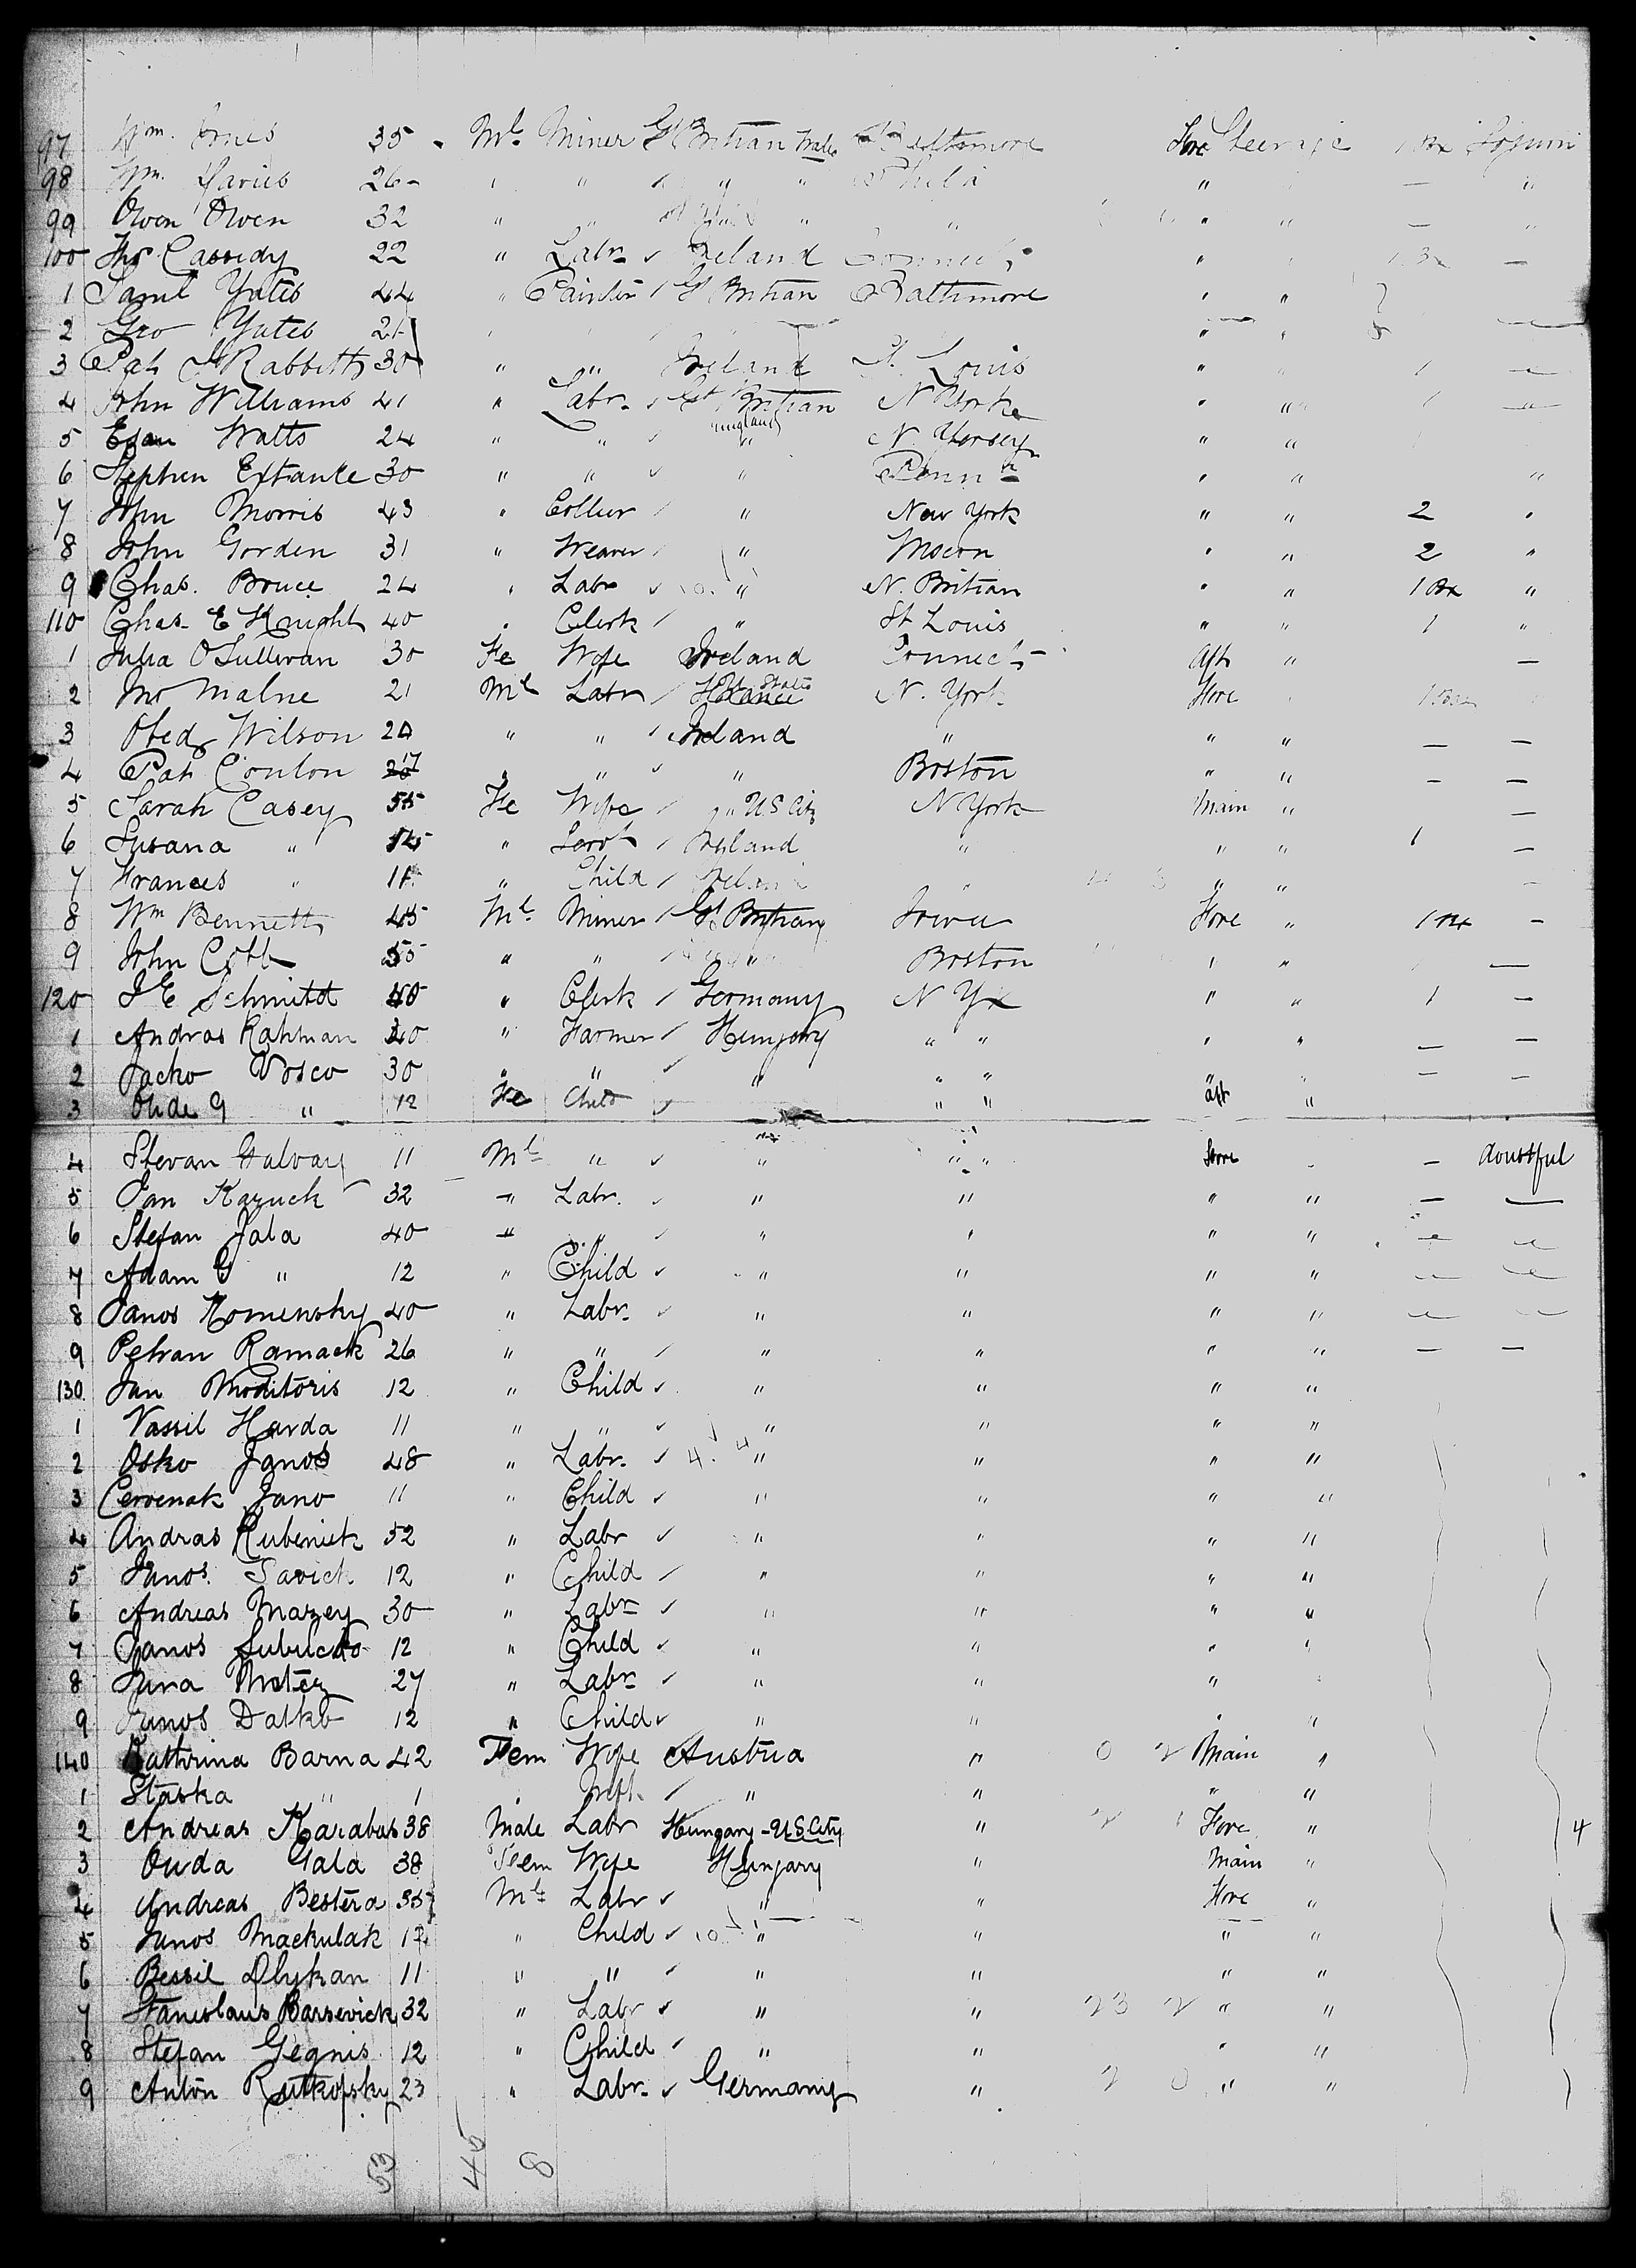 97 Wm. Jones 35 Ml. Miner Gt Britian Wales Baltimore Fore Steerage 1 Bx
98 Wm. Davies 26 " " " " Phila " — "
99 Owen Owen 32 " " " " " " — "
100 Cassidy 22 " Labr ✓ Ireland Connect. " —
1 Saml Yates 44 " Painter Gt Britian Baltimore " "
2 Geo Yates 21 " " —
3 Pat Rabbitt 30 " " Ireland St. Louis " " 1 —
4 John Williams 41 " Labr. Gt Britian N Yorke " " 1 —
5 Watts 24 " " England " N. Jersey " "
6 Stephen 30 " " ✓ " Penna " " "
7 John Morris 43 " Collier " New York " " 2 "
8 John Gorden 31 " Weaver " " " 2 "
9 Chas. Bruce 24 " Labr ✓ " N. Britian " " 1 Bx "
110 Chas. E Knight 40 " Clerk " St Louis " " 1 "
1 Julia OSullivan 30 Fe Wife Ireland Connect. Aft " —
2 Malne 21 Ml Labr U States N. York Fore 1 Box
3 Obed Wilson 20 " " Ireland " " " — —
4 Pat Conlon 17 " " ✓ " Boston " " — —
5 Sarah Casey 55 Fe Wife " U S Citz N York Main " —
6 Susana " " Servt " " " 1 —
7 Frances " 11 " Child Ireland " " " —
8 Wm Bennett 45 Ml. Miner Gt Britian Iowa Fore " 1 Bx —
9 John Cobb 55 " " " Boston " " —
120 J E Schmidt 40 " Clerk Germany N Yk " " 1 —
1 Andras Rahman 40 " Farmer Hungary " " " " — —
2 Jacko Vosco 30 " " ✓ " " " " " — —
3 " 12 Fe Child ✓ " " Aft "
4 Stevan Galvary 11 Ml " ✓ " " " Fore — doubtful
5 Jan Kazuck 32 " Labr. ✓ " " " " — —
6 Stefan Jala 40 " " ✓ " " " " — —
7 Adam G " 12 " Child ✓ " " " " — —
8 Janos Komensky 40 " Labr. ✓ " " " " — —
9 Petran Ramack 26 " " ✓ " " " " — —
130 Jan Moditoris 12 " Child ✓ " " " "
1 Vassil Harda 11 " " ✓ " " " "
2 Osko Janos 48 " Labr. ✓ 4. 4 " " " "
3 Cervenak Jano 11 " Child ✓ " " " "
4 Andras Rubenick 52 " Labr ✓ " " " "
5 Janos Savich 12 " Child ✓ " " " "
6 Andreas Mazey 30 " Labr ✓ " " " "
7 Janos 12 " Child ✓ " " " "
8 Jura 27 " Labr ✓ " " "
9 Janos Datko 12 " Child ✓ " " " "
140 Kathrina Barna 42 Fem Wife Austria " 0 2 Main "
1 Staska " 1 " Inft. ✓ " " " "
2 Andreas Karabas 38 Male Labr Hungary - U.S. City " Fore " 4
3 Gala 38 Feem Wife Hungary " Main "
4 Andreas Bestera 35 Ml Labr ✓ " " Fore "
5 Janos Mackulak 12 " Child ✓ " " " "
6 Bessil 11 " " ✓ " " " "
7 Stanislaus Barsevick 32 " Labr ✓ " " 23 2 " "
8 Stefan Gegnis 12 " Child ✓ " " " "
9 Anton Rutkofsky 23 " Labr. ✓ Germany " 2 0 " "
53 45 8